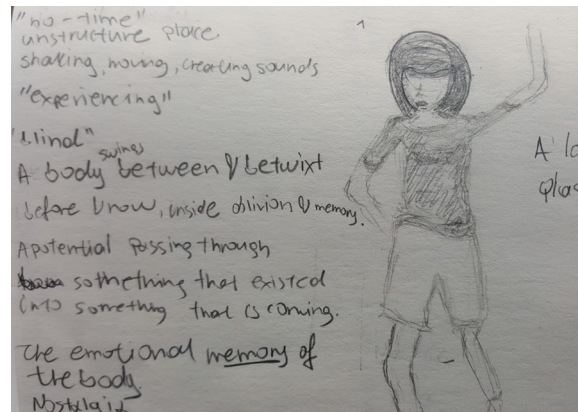 "no-time"
unstructure place
shaking, moving, creating sounds
"experiencing"
"blind"
swings
A body between & betwixt
before & now, inside oblivion & memory.
A potential passing through
somthething that existed
into something that is coming.
The emotional memory of
the body.
Nostalgia
A